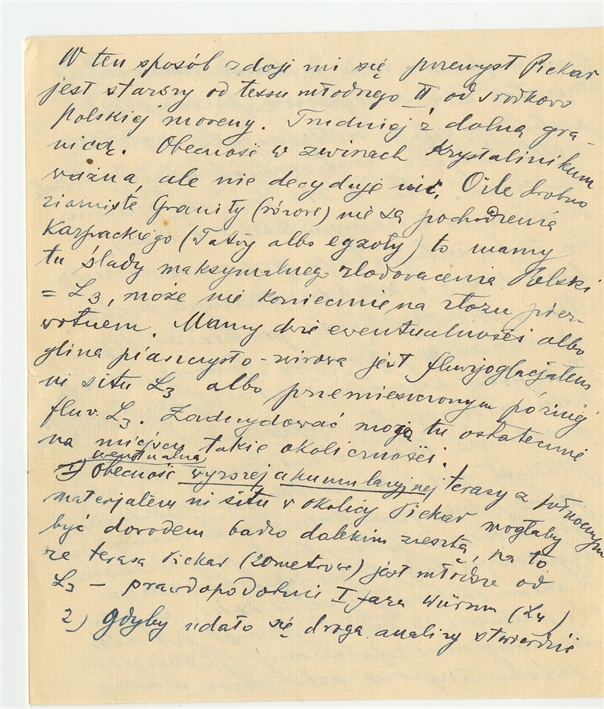 W ten sposób zdaji mi się przemysł Piekar
jest starszy od lessu młodnego II, od środkowo
polskiej moreny. Trudniej z dolną gra-
nicą. Obecność w żwirach Krystalinikum
ważna, ale nie decyduje nic. O ile drobno
ziarniste Granity (różowe) nie są pochodzenia
Karpackiego (Tatry albo egzoty) to mamy
tu ślady maksymalnego zlodowacenia Polski
= L3, może nie koniecznie na złożu pier-
wotnem. Mamy dwie ewentualności albo
glina piaszczysto-żwirowa jest fluwijoglacjałem
ni situ L3 albo przemieszczonym później
fluv. L3. Zadecydować mogą tu ostatecznie
na miejscu takie okoliczności.
ewentualna
1) Obecność wyższej akumulacyjnej terasy z północnym
materjałem ni situ w okolicy Piekar mogłaby
być dowodem bardzo dalekim zresztą, na to
że terasa Piekar (20metrowa) jest młodsza od
L3 – prawdopodobnie I faza Würmu (L4)
2) gdyby udało się drogą analizy stwierdzić